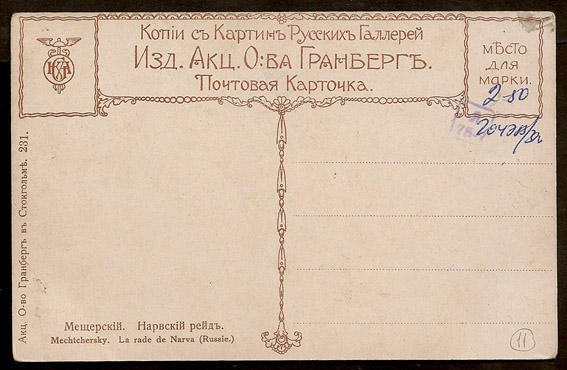 Копіи съ Картинъ Русскихъ Галлерей
Изд. Акц. О:ва Гранбергъ.
Почтовая Карточка.
мѣсто
для
марки.
2-80
Акц. О-во Гранбергъ въ Стокгольмѣ. 231.
Мещерскій. Нарвскій рейдъ.
Mechtchersky. La rade de Narva (Russie.)
11